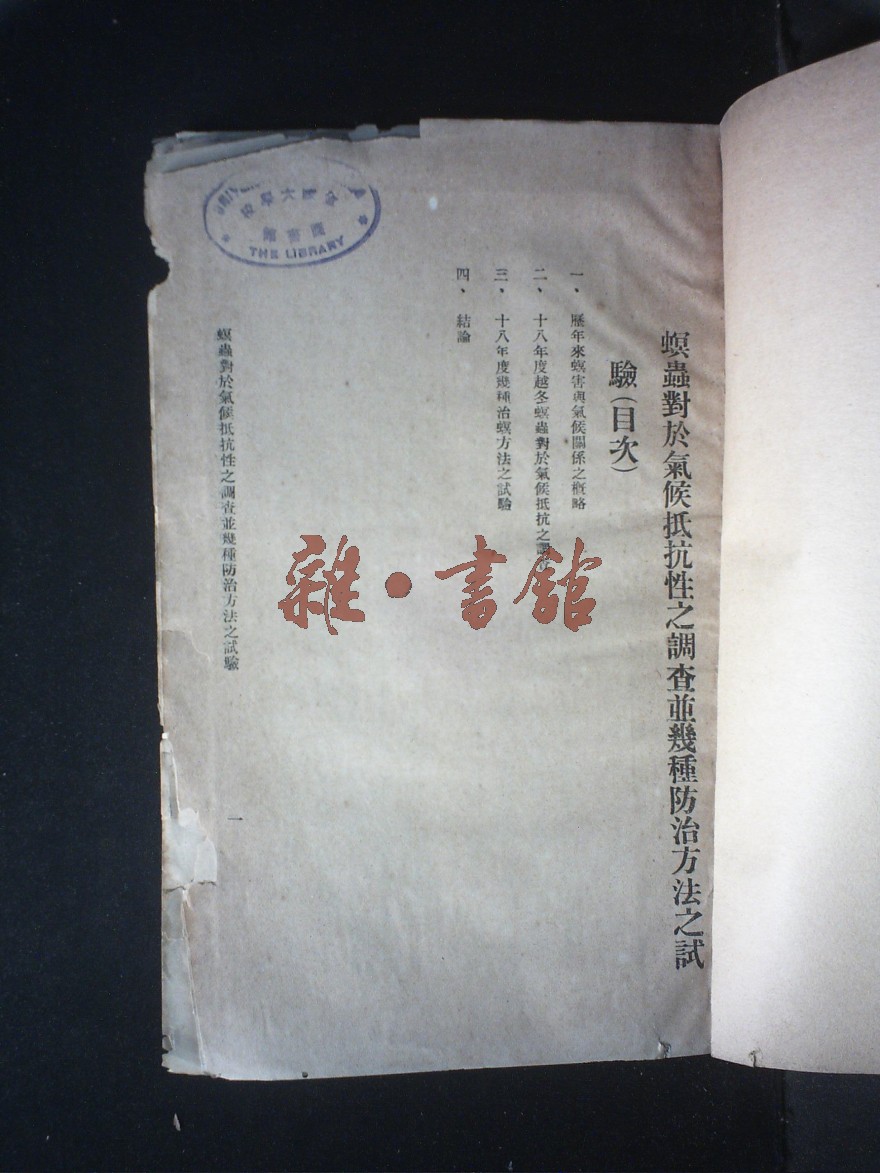 螟蟲對於氣候抵抗性之調查並幾種防治方法之試
驗(目次)
一、歷年來螟害與氣候關係之概略
二、十八年度越冬螟蟲對於氣候抵抗之調查
三、十八年度幾種治螟方法之試驗
四、結論
螟蟲對於氣候抵抗性之調查並幾種防治方法之試驗
一
圖書館
THE LIBRARY
雜·書館